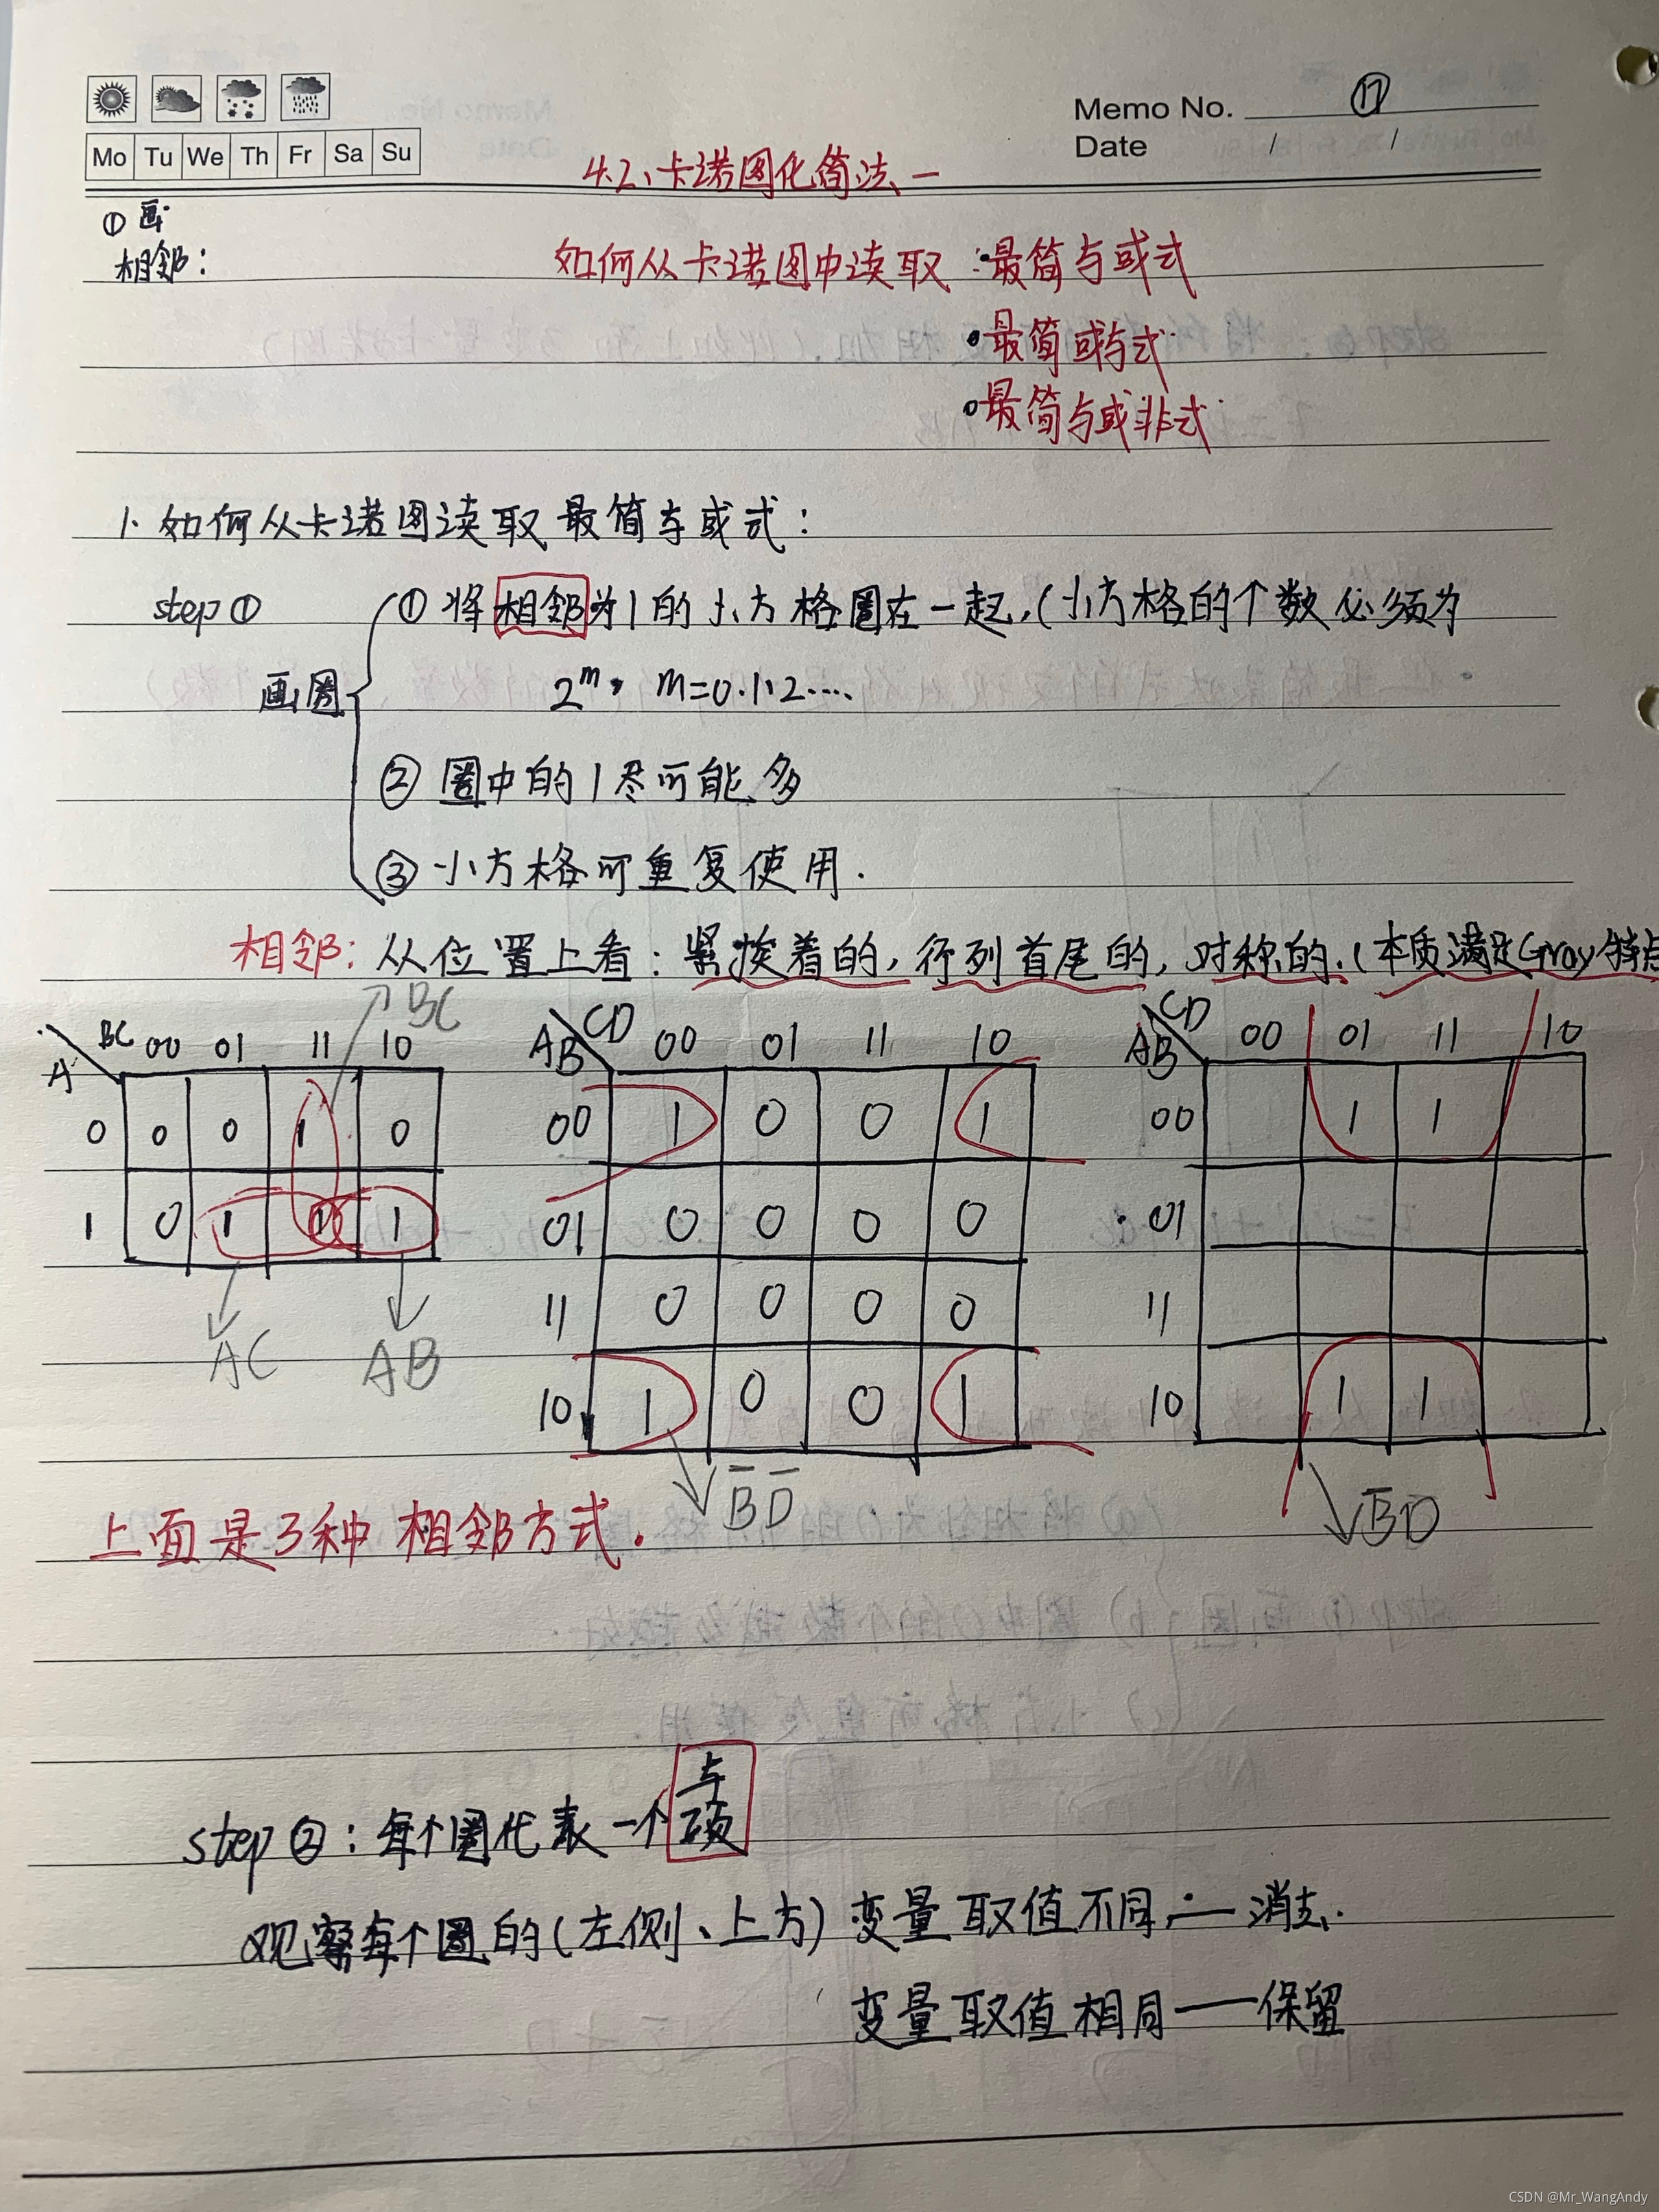 Memo No. ⑰
Mo Tu We Th Fr Sa Su
Date / /
4.2、卡诺图化简法一
① 画
相邻：
如何从卡诺图中读取：·最简与或式
·最简或与式
·最简与或非式
1. 如何从卡诺图读取最简与或式：
step ①
① 将相邻为1的小方格圈在一起,(小方格的个数必须为
画圈
2^m, m=0.1.2....
② 圈中的1尽可能多
③ 小方格可重复使用.
相邻: 从位置上看: 紧挨着的, 行列首尾的, 对称的. (本质满足Gray特点
BC
A BC 00 01 11 10
0 0 0 1 0
1 0 1 1 1
AC AB
AB CD 00 01 11 10
00 1 0 0 1
01 0 0 0 0
11 0 0 0 0
10 1 0 0 1
B̅ D̅
AB CD 00 01 11 10
00 1 1
01
11
10 1 1
B̅D
上面是3种相邻方式.
step ②: 每个圈代表一个与项
观察每个圈的(左侧、上方) 变量取值不同 — 消去.
变量取值相同 — 保留
CSDN @Mr_WangAndy